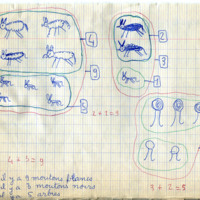 4
9
5
2
3
1
2 + 1 = 3
4 + 5 = 9
il y a 9 moutons blancs
il y a 3 moutons noirs
il y a 5 arbres
3 + 2 = 5